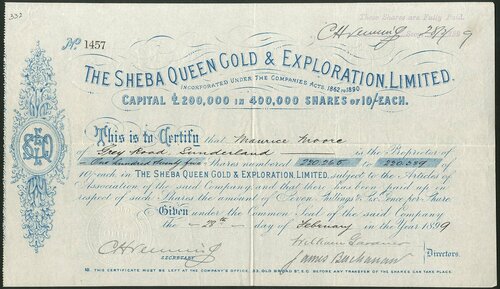 332
These Shares are Fully Paid.
No 1457
28/2/99
THE SHEBA QUEEN GOLD & EXPLORATION, LIMITED.
INCORPORATED UNDER THE COMPANIES ACTS, 1862 TO 1890.
CAPITAL £200,000 IN 400,000 SHARES OF 10/- EACH.
This is to Certify that Maurice Moore
Road Sunderland is the Proprietor of
One hundred Shares numbered 220,265 to 220,389 of
10/- each in THE SHEBA QUEEN GOLD & EXPLORATION, LIMITED, subject to the Articles of
Association of the said Company and that there has been paid up in
respect of each Shares the amount of Seven Shillings & Six Pence per Share
Given under the Common Seal of the said Company
the 28th day of February in the Year 1899
SECRETARY
William
James Buchanan
Directors.
THIS CERTIFICATE MUST BE LEFT AT THE COMPANY'S OFFICE, 23, OLD BROAD ST, E.C. BEFORE ANY TRANSFER OF THE SHARES CAN TAKE PLACE.